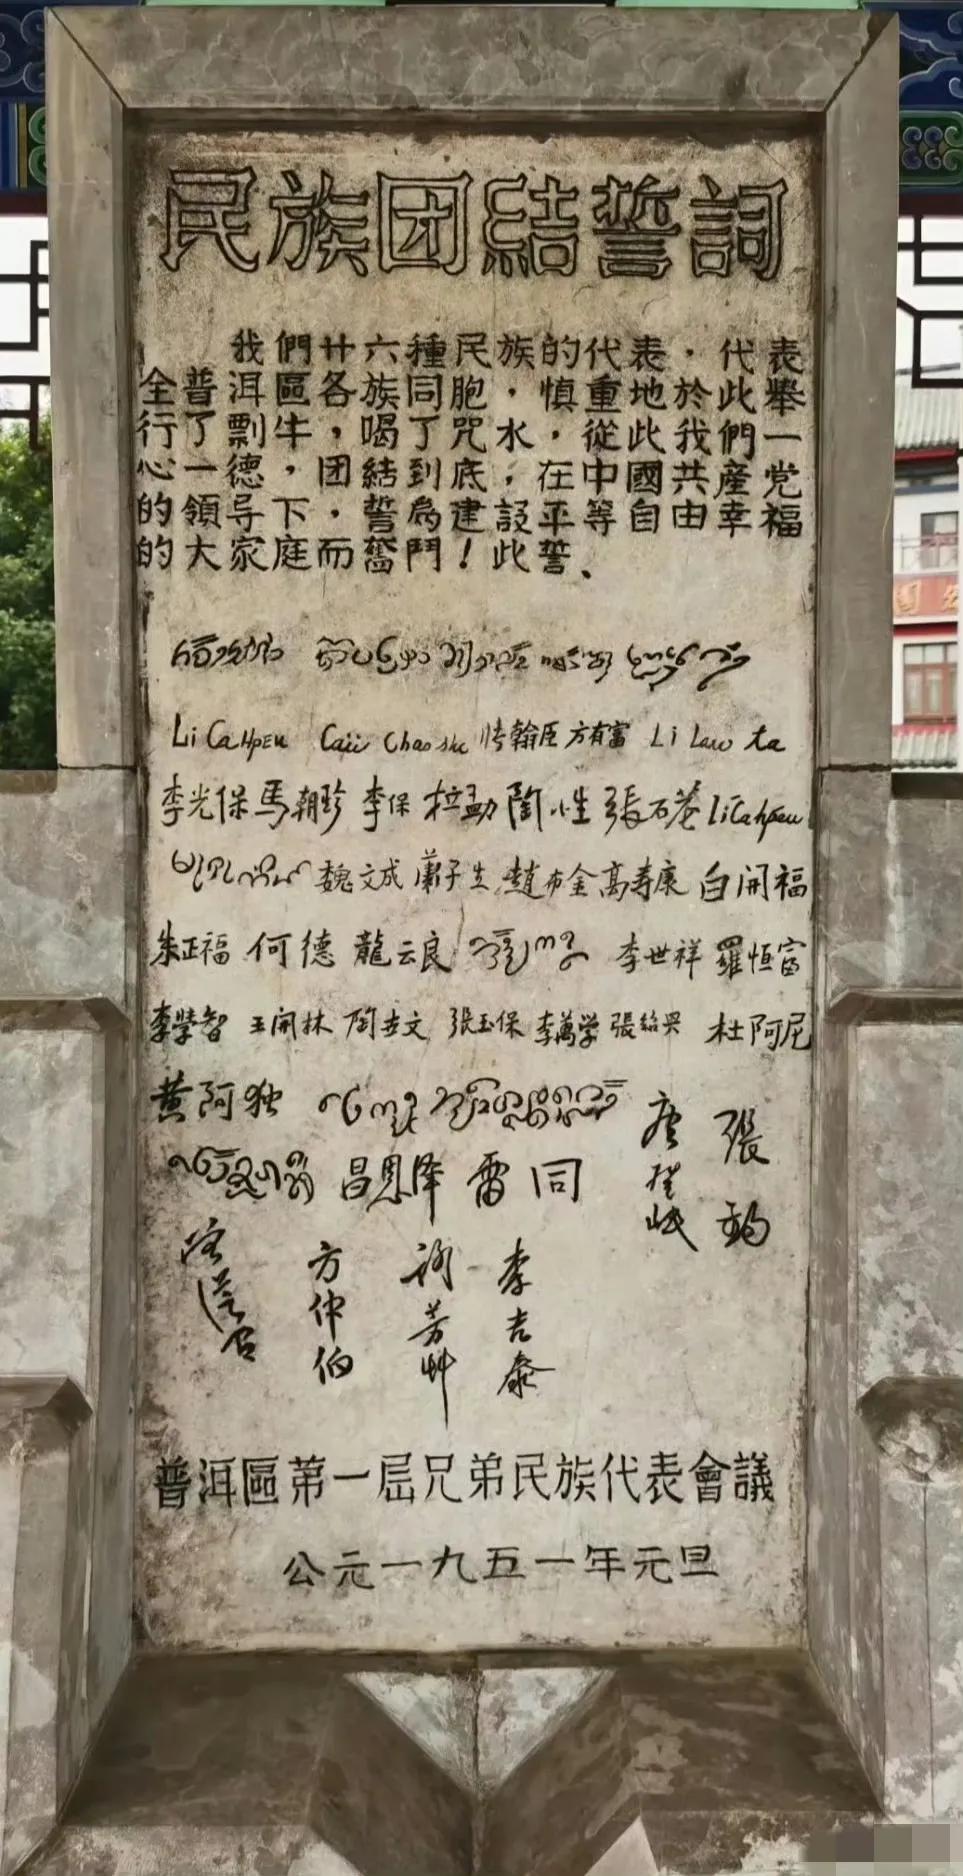 民族团結誓詞
我們廿六種民族的代表，代表
全普洱區各族同胞，慎重地於此舉
行了剽牛，喝了咒水，從此我們一
心一德，团結到底，在中國共產党
的領导下，誓為建設平等自由幸福
的大家庭而奮鬥！此誓、
Li CaHpEu 方有富 Li Law ta
李光保 馬朝珍 李保 拉勐 陶小生 張石菴 LiCahpeu
魏文成 蕭子生 趙布金 高寿康 白開福
朱正福 何德 龍云良 李世祥 羅恒富
李學智 王開林 陶世文 張玉保 李萬学 張紹興 杜阿尼
黄阿独 唐登岷 張鈞
昌恩澤 雷同
方仲伯
李吉泰
普洱區第一屆兄弟民族代表會議
公元一九五一年元旦